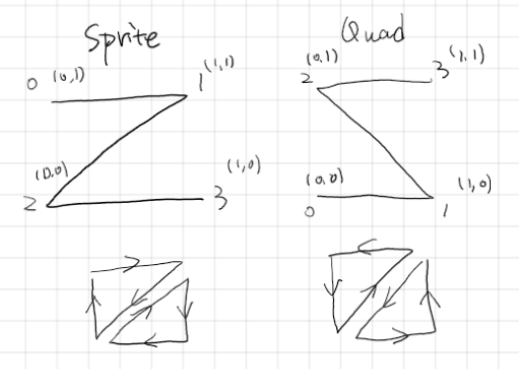 Sprite
0 (0,1)
1 (1,1)
(0,0)
2
(1,0)
3
Quad
(0,1)
2
3 (1,1)
(0,0)
0
(1,0)
1